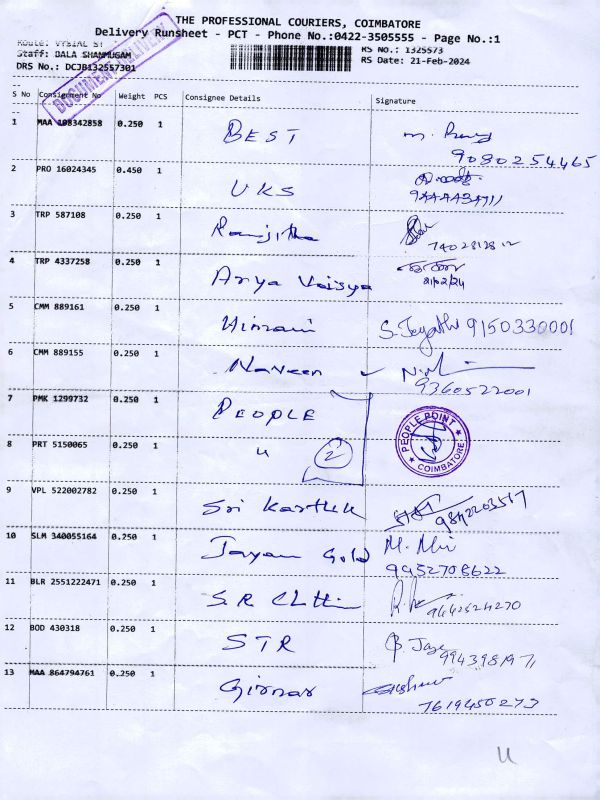 THE PROFESSIONAL COURIERS, COIMBATORE
Delivery Runsheet - PCT - Phone No.:0422-3505555 - Page No.:1
Route: VYSIAL ST
Staff: BALA SHANMUGAM
RS No.: 1325573
DRS No.: DCJB132557301
RS Date: 21-Feb-2024
S No Consignment No Weight PCS Consignee Details Signature
1 MAA 108342858 0.250 1 BEST
9080254465
2 PRO 16024345 0.450 1 UKS
3 TRP 587108 0.250 1 Ranjitha
4 TRP 4337258 0.250 1 Arya Vaisya
21/02/24
5 CMM 889161 0.250 1 S. Jeyathi 9150330001
6 CMM 889155 0.250 1 Naveen
9360522001
7 PMK 1299732 0.250 1 PEOPLE
PEOPLE POINT
COIMBATORE
8 PRT 5150065 0.250 1 " 2
9 VPL 522002782 0.250 1 Sri Karthik
10 SLM 340055164 0.250 1 Jayam Gold
9952708622
11 BLR 2551222471 0.250 1 S.R
12 BOD 430318 0.250 1 STR
13 MAA 864794761 0.250 1 Girnar
7619450273